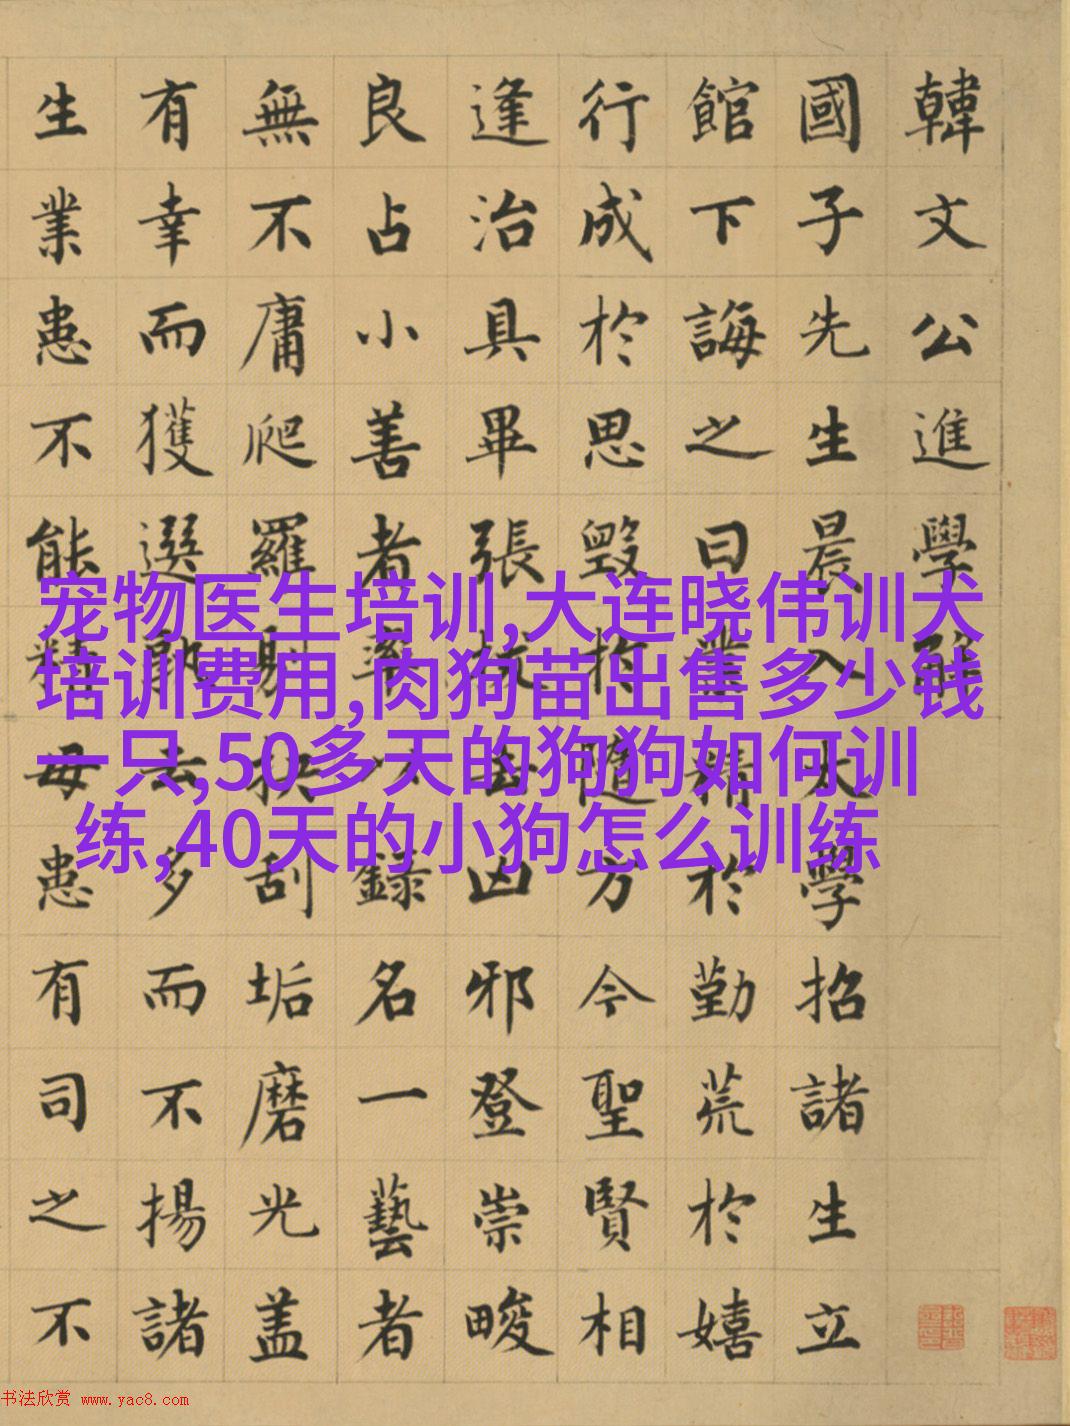 韓文公進學解
國子先生晨入太學招諸生立
館下誨之曰業精於勤荒於嬉
行成於思毀於隨方今聖賢相
逢治具畢張拔去凶邪登崇畯
良占小善者率以錄名一藝者
無不庸爬羅剔抉刮垢磨光盖
有幸而獲選孰云多而不揚諸
生業患不能精毋患有司之不
宠物医生培训,大连晓伟训犬
培训费用,肉狗苗出售多少钱
一只,50多天的狗狗如何训
练,40天的小狗怎么训练
书法欣赏 www.yac8.com